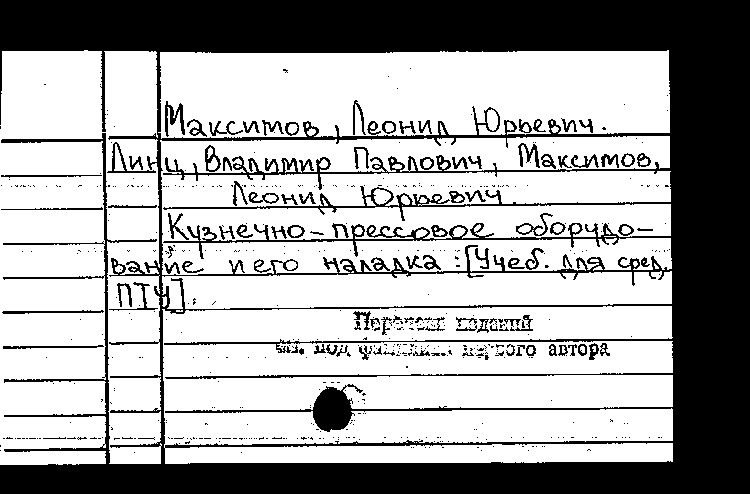 Максимов, Леонид Юрьевич.
Линц, Владимир Павлович, Максимов,
Леонид Юрьевич.
Кузнечно-прессовое оборудо-
вание и его наладка : [Учеб. для сред.
ПТУ].
Перечень изданий
см. под фамилией первого автора